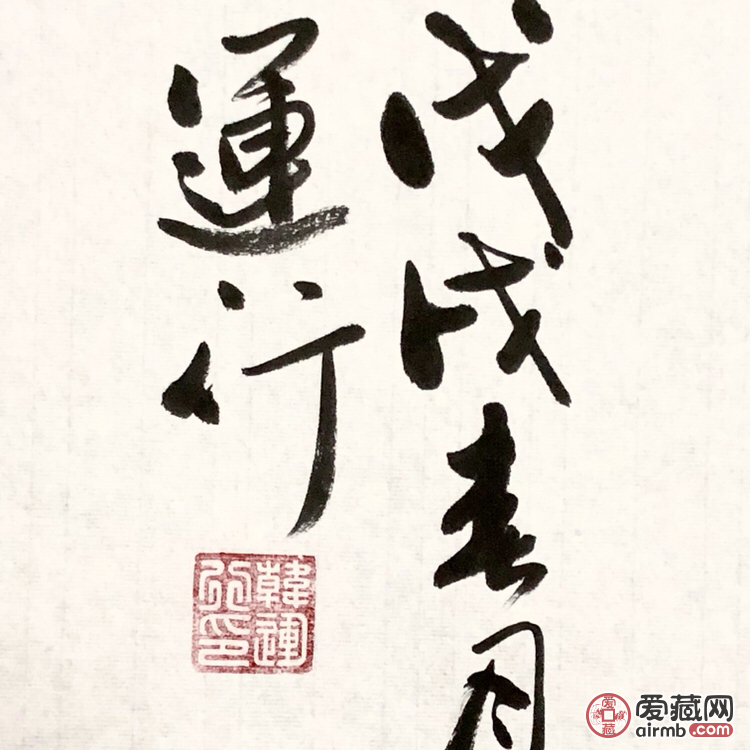 戊戌春月
運行
韓運行印
爱藏网
airmb.com